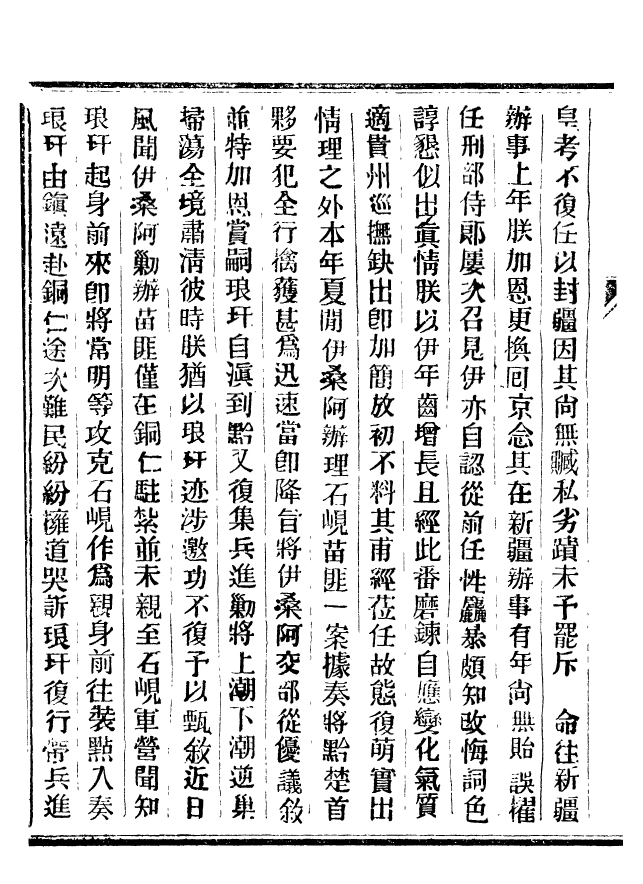 皇考不復任以封疆因其尙無贓私劣蹟未予罷斥　命往新疆
辦事上年朕加恩更換囘京念其在新疆辦事有年尙無貽誤擢
任刑部侍郞屢次召見伊亦自認從前任性麤暴頗知改悔詞色
諄懇似出眞情朕以伊年齒增長且經此番磨鍊自應變化氣質
適貴州巡撫缺出卽加簡放初不料其甫經莅任故態復萌實出
情理之外本年夏閒伊桑阿辦理石峴苗匪一案據奏將黔楚首
夥要犯全行擒獲甚爲迅速當卽降旨將伊桑阿交部從優議敘
並特加恩賞嗣琅玕自滇到黔又復集兵進勦將上潮下潮逆巢
掃蕩全境肅淸彼時朕猶以琅玕迹涉邀功不復予以甄敘近日
風聞伊桑阿勦辦苗匪僅在銅仁駐紮並未親至石峴軍營聞知
琅玕起身前來卽將常明等攻克石峴作爲親身前往裝點入奏
琅玕由鎭遠赴銅仁途次難民紛紛擁道哭訴琅玕復行帶兵進